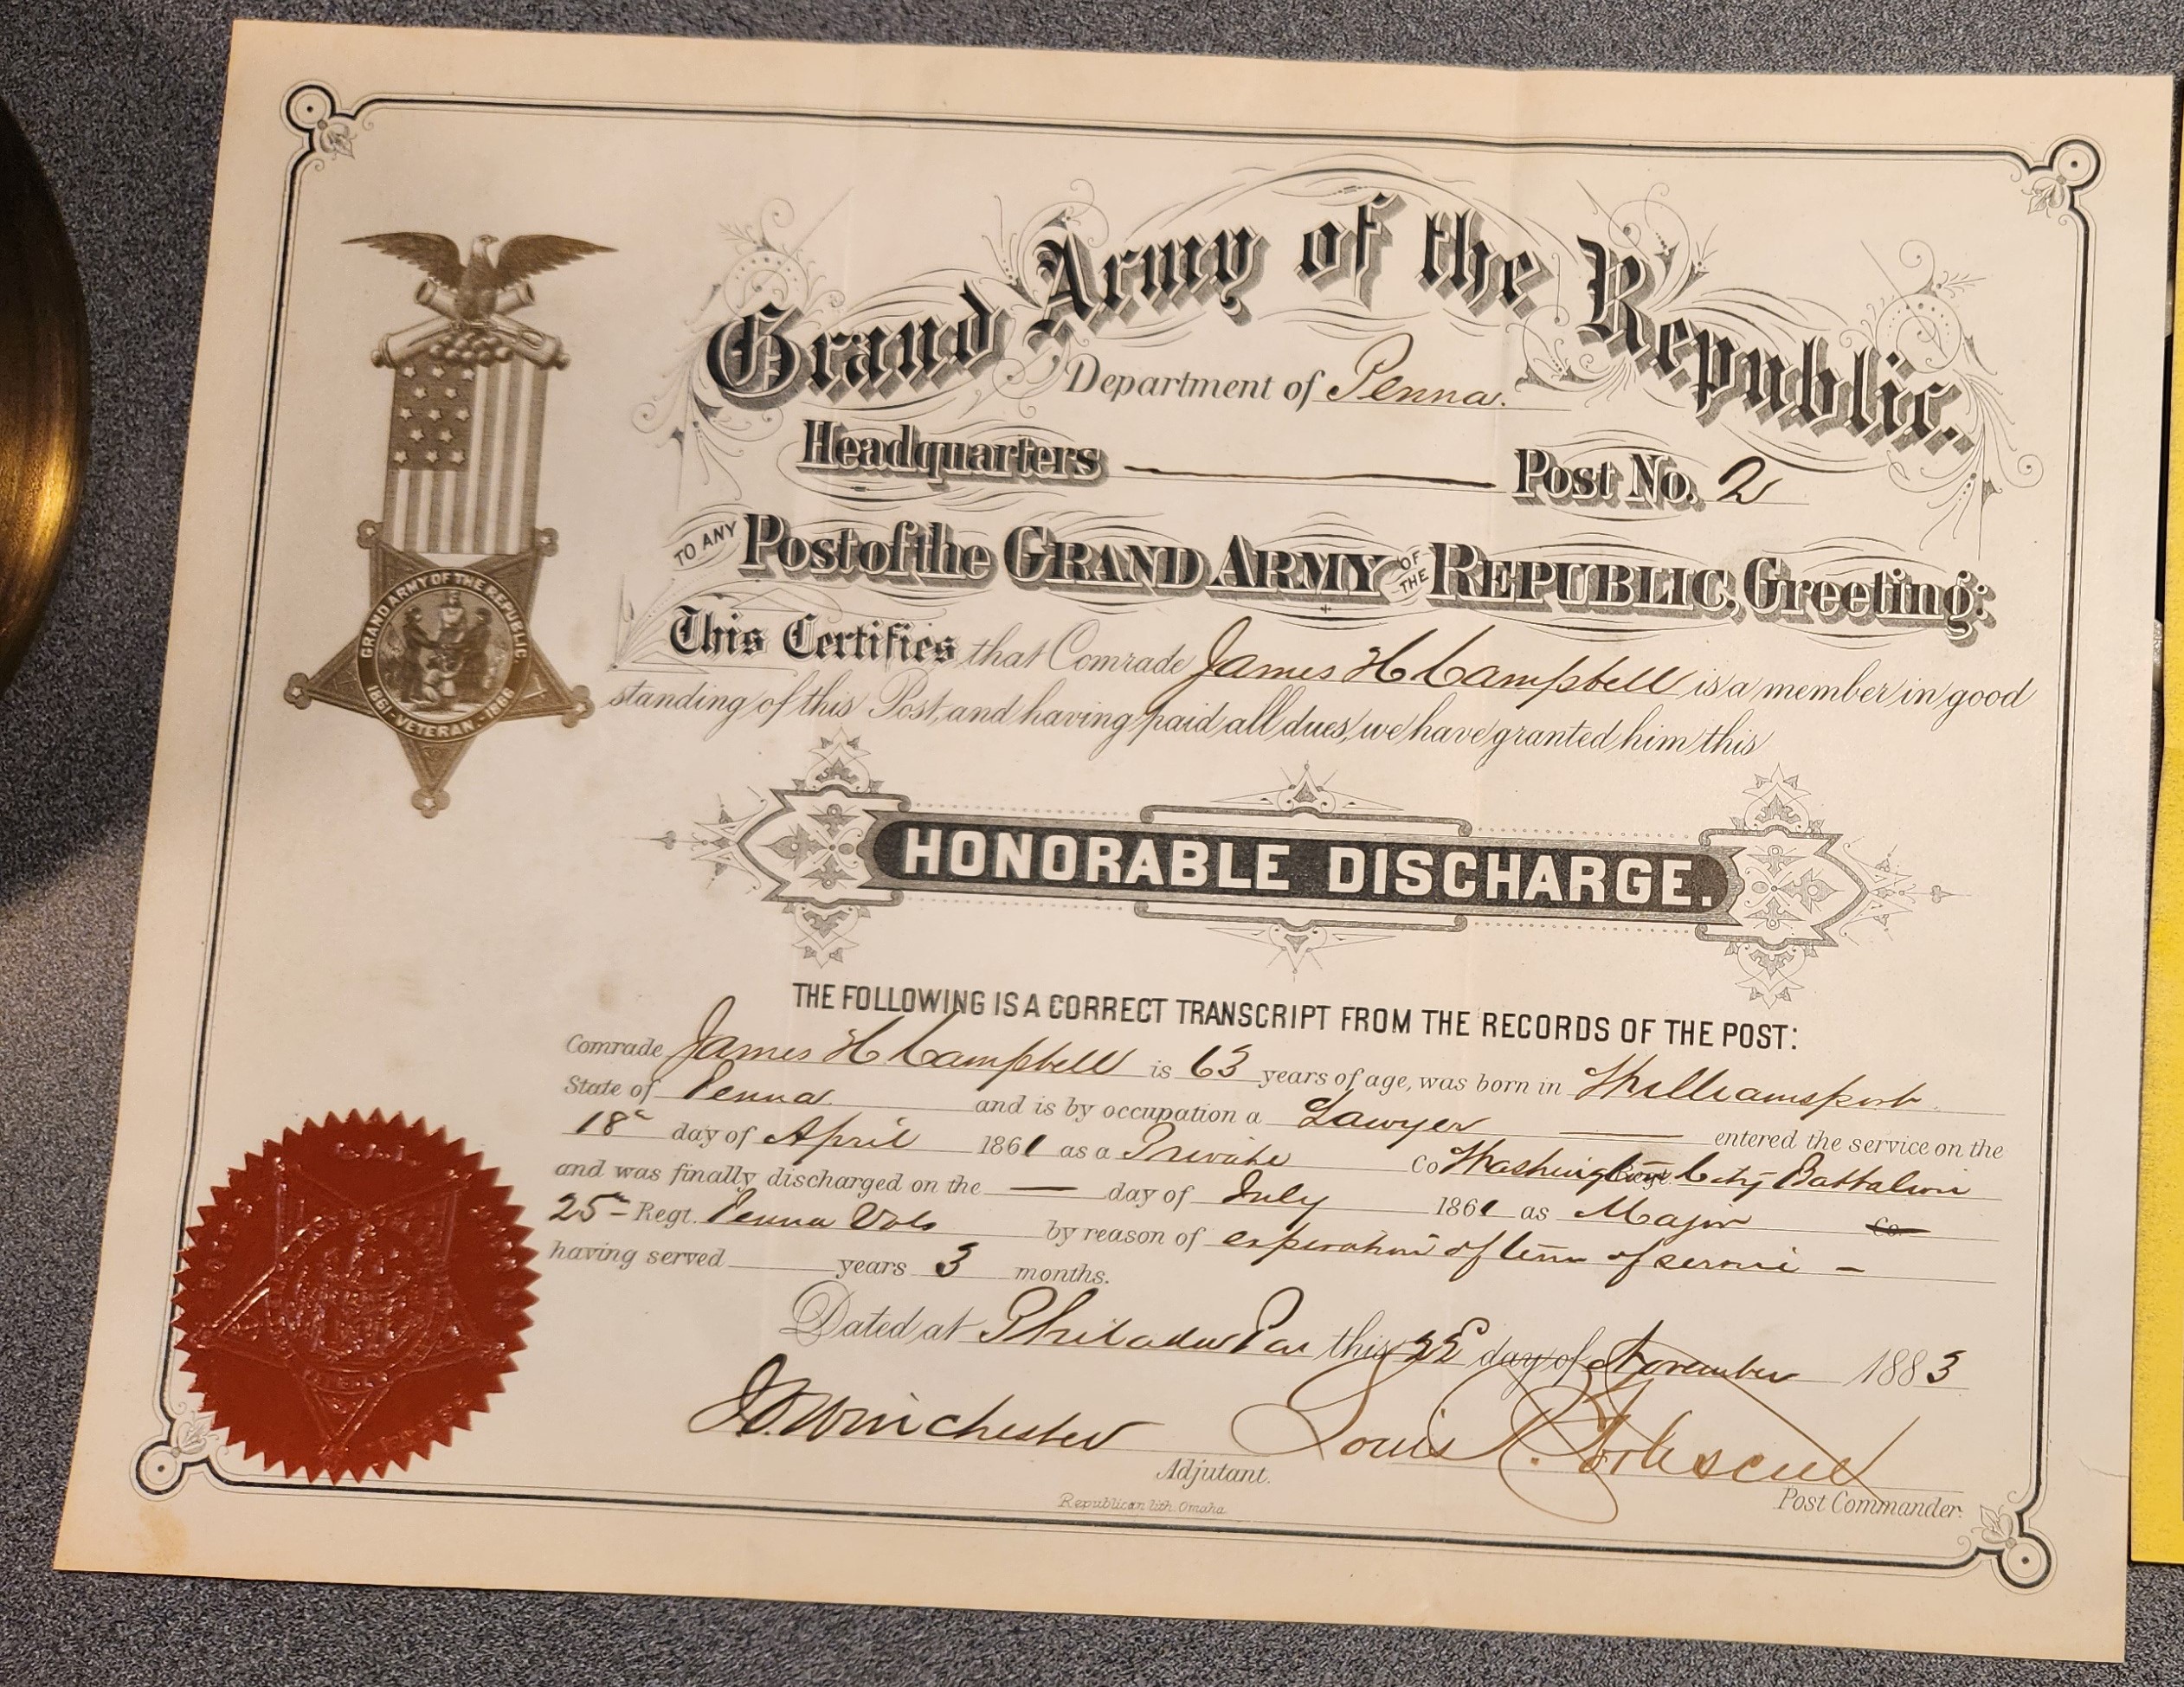 Grand Army of the Republic.
Department of Penna.
Headquarters Post No. 2
TO ANY Post of the GRAND ARMY OF THE REPUBLIC, Greeting:
This Certifies that Comrade James H Campbell is a member in good
standing of this Post, and having paid all dues, we have granted him this
GRAND ARMY OF THE REPUBLIC
1861-VETERAN-1866
HONORABLE DISCHARGE.
THE FOLLOWING IS A CORRECT TRANSCRIPT FROM THE RECORDS OF THE POST:
Comrade James H. Campbell is 63 years of age, was born in Williamsport
State of Penna and is by occupation a Lawyer entered the service on the
18 day of April 1861 as a Private Co Washington City Battalion
and was finally discharged on the — day of July 1861 as Major Co
25 Regt. Penna Vols by reason of expiration of term of service —
having served years 3 months.
Dated at Philada Pa this 22 day of November 1883
Winchester Louis Fortescue
Adjutant. Post Commander.
Republican lith. Omaha